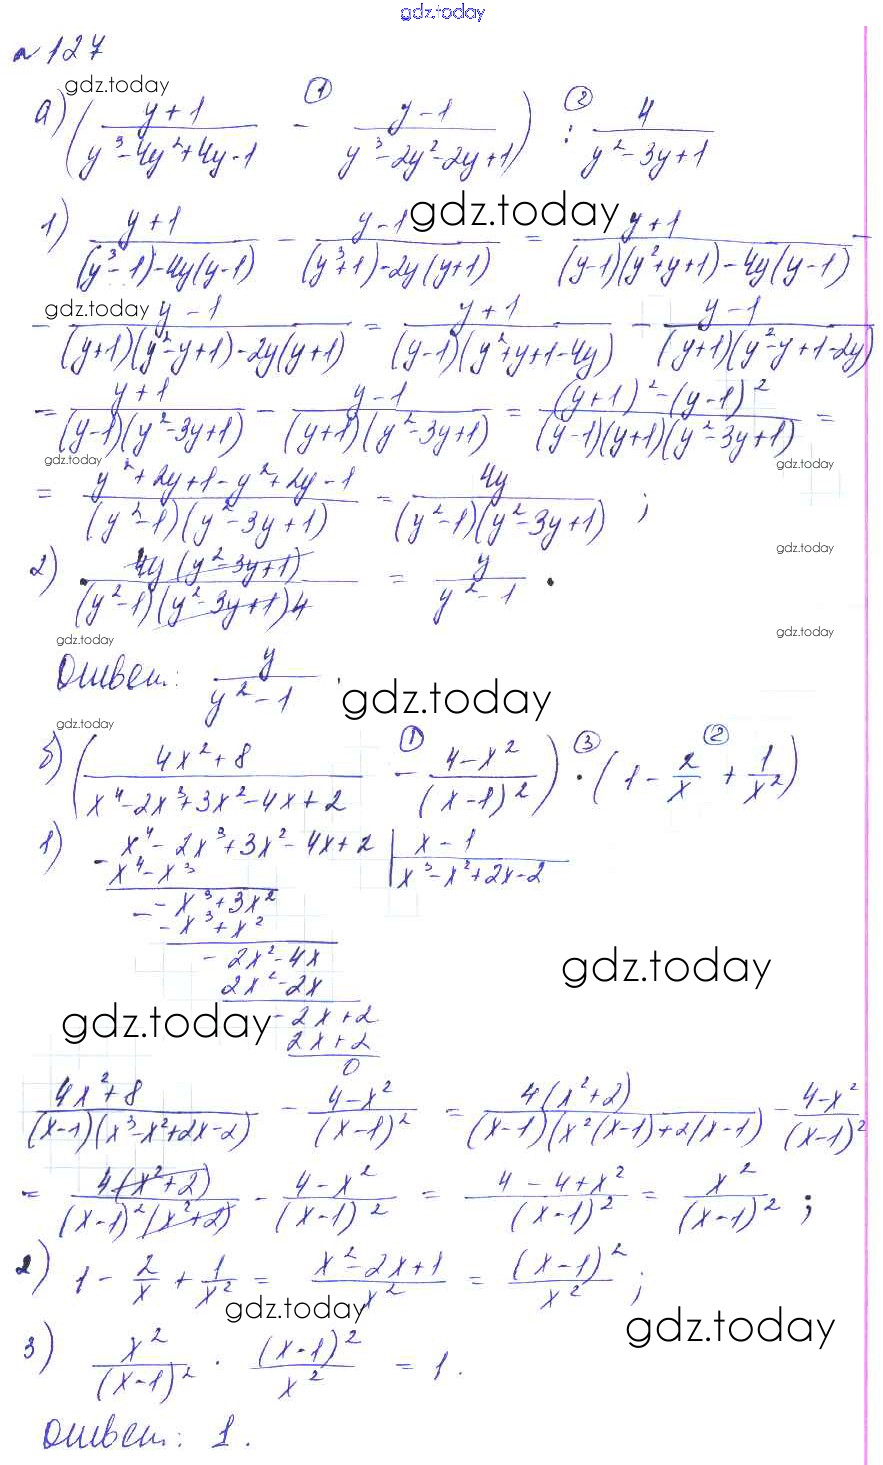 gdz.today
№127
gdz.today
а) ( (y+1)/(y³-4y²+4y-1) -① (y-1)/(y³-2y²-2y+1) ) :② 4/(y²-3y+1)
1) (y+1)/((y³-1)-4y(y-1)) - (y-1)/((y³+1)-2y(y+1)) = (y+1)/((y-1)(y²+y+1)-4y(y-1)) -
gdz.today
gdz.today
- (y-1)/((y+1)(y²-y+1)-2y(y+1)) = (y+1)/((y-1)(y²+y+1-4y)) - (y-1)/((y+1)(y²-y+1-2y))
= (y+1)/((y-1)(y²-3y+1)) - (y-1)/((y+1)(y²-3y+1)) = ((y+1)²-(y-1)²)/((y-1)(y+1)(y²-3y+1)) =
gdz.today
gdz.today
= (y²+2y+1-y²+2y-1)/((y²-1)(y²-3y+1)) = 4y/((y²-1)(y²-3y+1)) ;
gdz.today
2) 4y(y²-3y+1)/((y²-1)(y²-3y+1)4) = y/(y²-1) .
gdz.today
gdz.today
Ответ: y/(y²-1) .
gdz.today
gdz.today
б) ( (4x²+8)/(x⁴-2x³+3x²-4x+2) -① (4-x²)/((x-1)²) ) ·③ (1 - 2/x +② 1/x²)
1) - x⁴-2x³+3x²-4x+2 | x-1
x⁴-x³ | x³-x²+2x-2
- -x³+3x²
-x³+x²
- 2x²-4x
2x²-2x
gdz.today
gdz.today
- 2x+2
2x+2
0
(4x²+8)/((x-1)(x³-x²+2x-2)) - (4-x²)/((x-1)²) = 4(x²+2)/((x-1)(x²(x-1)+2(x-1)) - (4-x²)/((x-1)²)
= 4(x²+2)/((x-1)²(x²+2)) - (4-x²)/((x-1)²) = (4-4+x²)/((x-1)²) = x²/((x-1)²) ;
2) 1 - 2/x + 1/x² = (x²-2x+1)/x² = ((x-1)²)/x² ;
gdz.today
gdz.today
3) x²/((x-1)²) · ((x-1)²)/x² = 1 .
Ответ: 1 .